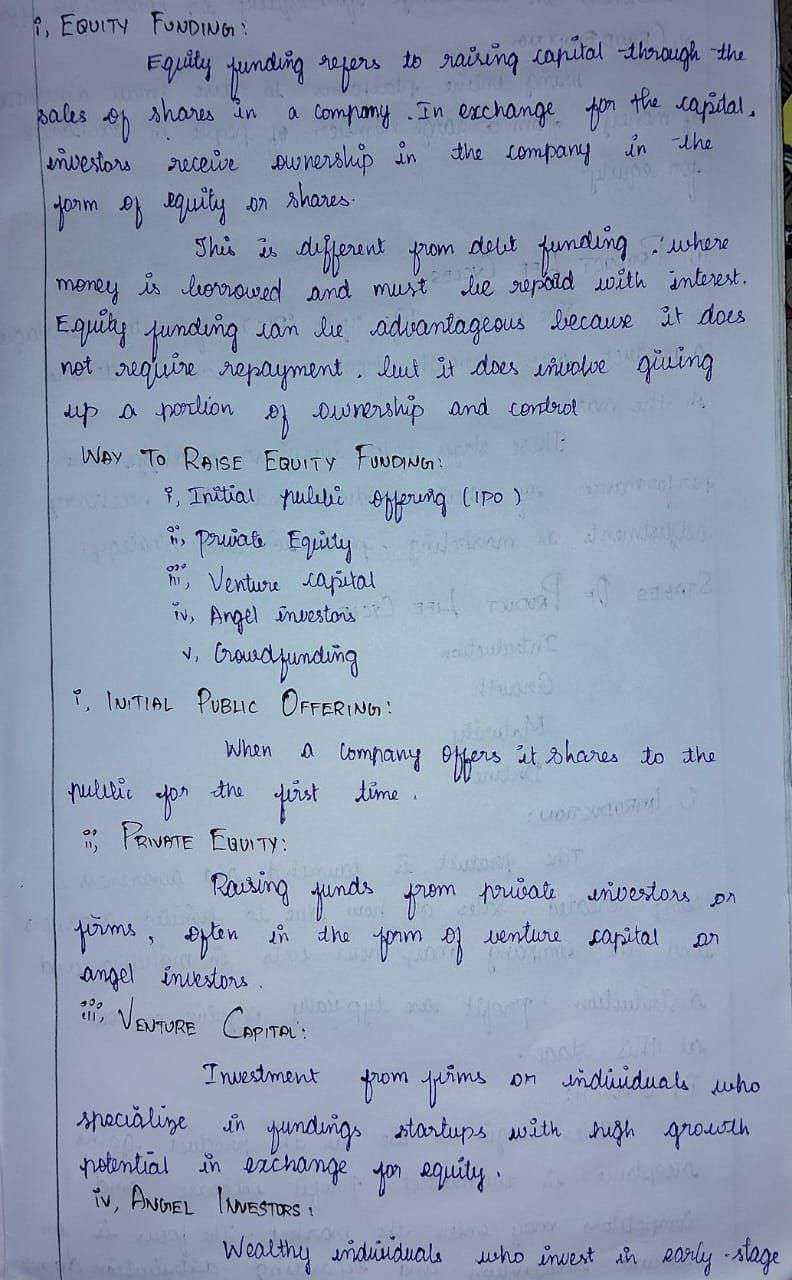 i, EQUITY FUNDING:
Equity funding refers to raising capital through the
sales of shares in a company. In exchange for the capital,
investors receive ownership in the company in the
form of equity or shares.
This is different from debt funding, where
money is borrowed and must be repaid with interest.
Equity funding can be advantageous because it does
not require repayment, but it does involve giving
up a portion of ownership and control
WAY TO RAISE EQUITY FUNDING:
i, Initial public offering (IPO)
ii, Private Equity
iii, Venture capital
iv, Angel investors
v, Crowdfunding
i, INITIAL PUBLIC OFFERING:
When a company offers it shares to the
public for the first time.
ii, PRIVATE EQUITY:
Raising funds from private investors or
firms, often in the form of venture capital or
angel investors.
iii, VENTURE CAPITAL:
Investment from firms or individuals who
specialize in fundings startups with high growth
potential in exchange for equity.
iv, ANGEL INVESTORS:
Wealthy individuals who invest in early-stage